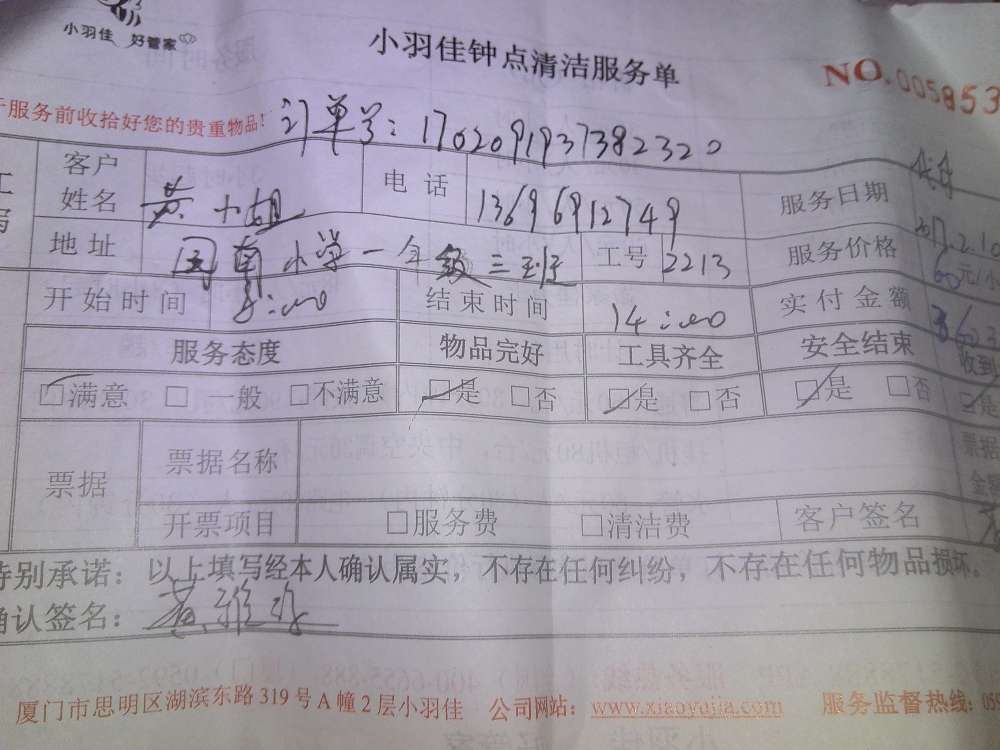 小羽佳 好管家
小羽佳钟点清洁服务单
NO.005853
服务前收拾好您的贵重物品!
订单号:1702091937382320
客户姓名 黄小姐 电话 13696912749 服务日期 2017.2.10
地址 小学一年级三班 工号 2213 服务价格 60元/小
开始时间 8:00 结束时间 14:00 实付金额 360元
服务态度 物品完好 工具齐全 安全结束 收到
□满意 □一般 □不满意 □是 □否 □是 □否 □是 □否 □是
票据 票据名称 票据
开票项目 □服务费 □清洁费 客户签名
特别承诺:以上填写经本人确认属实,不存在任何纠纷,不存在任何物品损坏。
确认签名:黄雅
厦门市思明区湖滨东路319号A幢2层小羽佳 公司网站:www.xiaoyujia.com 服务监督热线:059